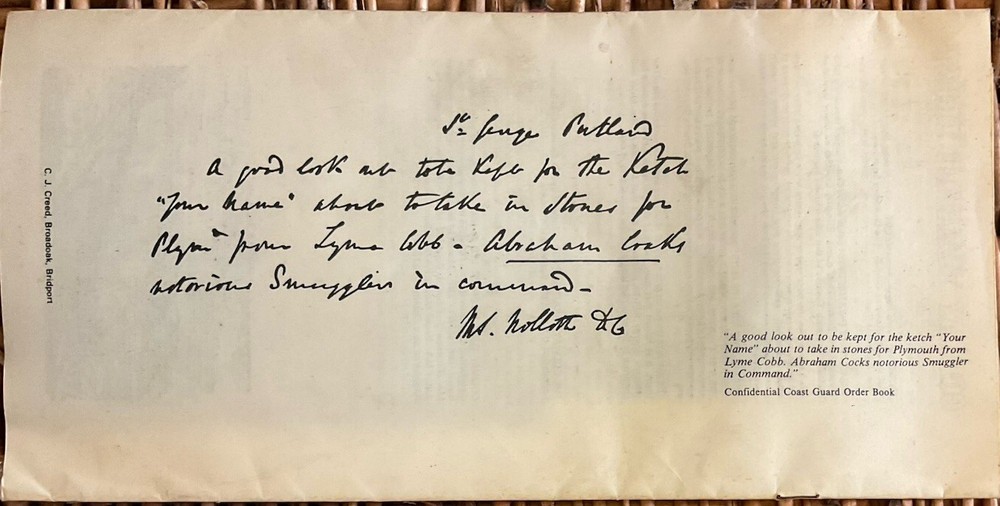 St George Portland
A good look out to be Kept for the Ketch
"Your Name" about to take in Stones for
Plymth from Lyme Cobb - Abraham Cocks
notorious Smuggler in command -
Nolloth
"A good look out to be kept for the ketch "Your
Name" about to take in stones for Plymouth from
Lyme Cobb. Abraham Cocks notorious Smuggler
in Command."
Confidential Coast Guard Order Book
C. J. Creed, Broadoak, Bridport